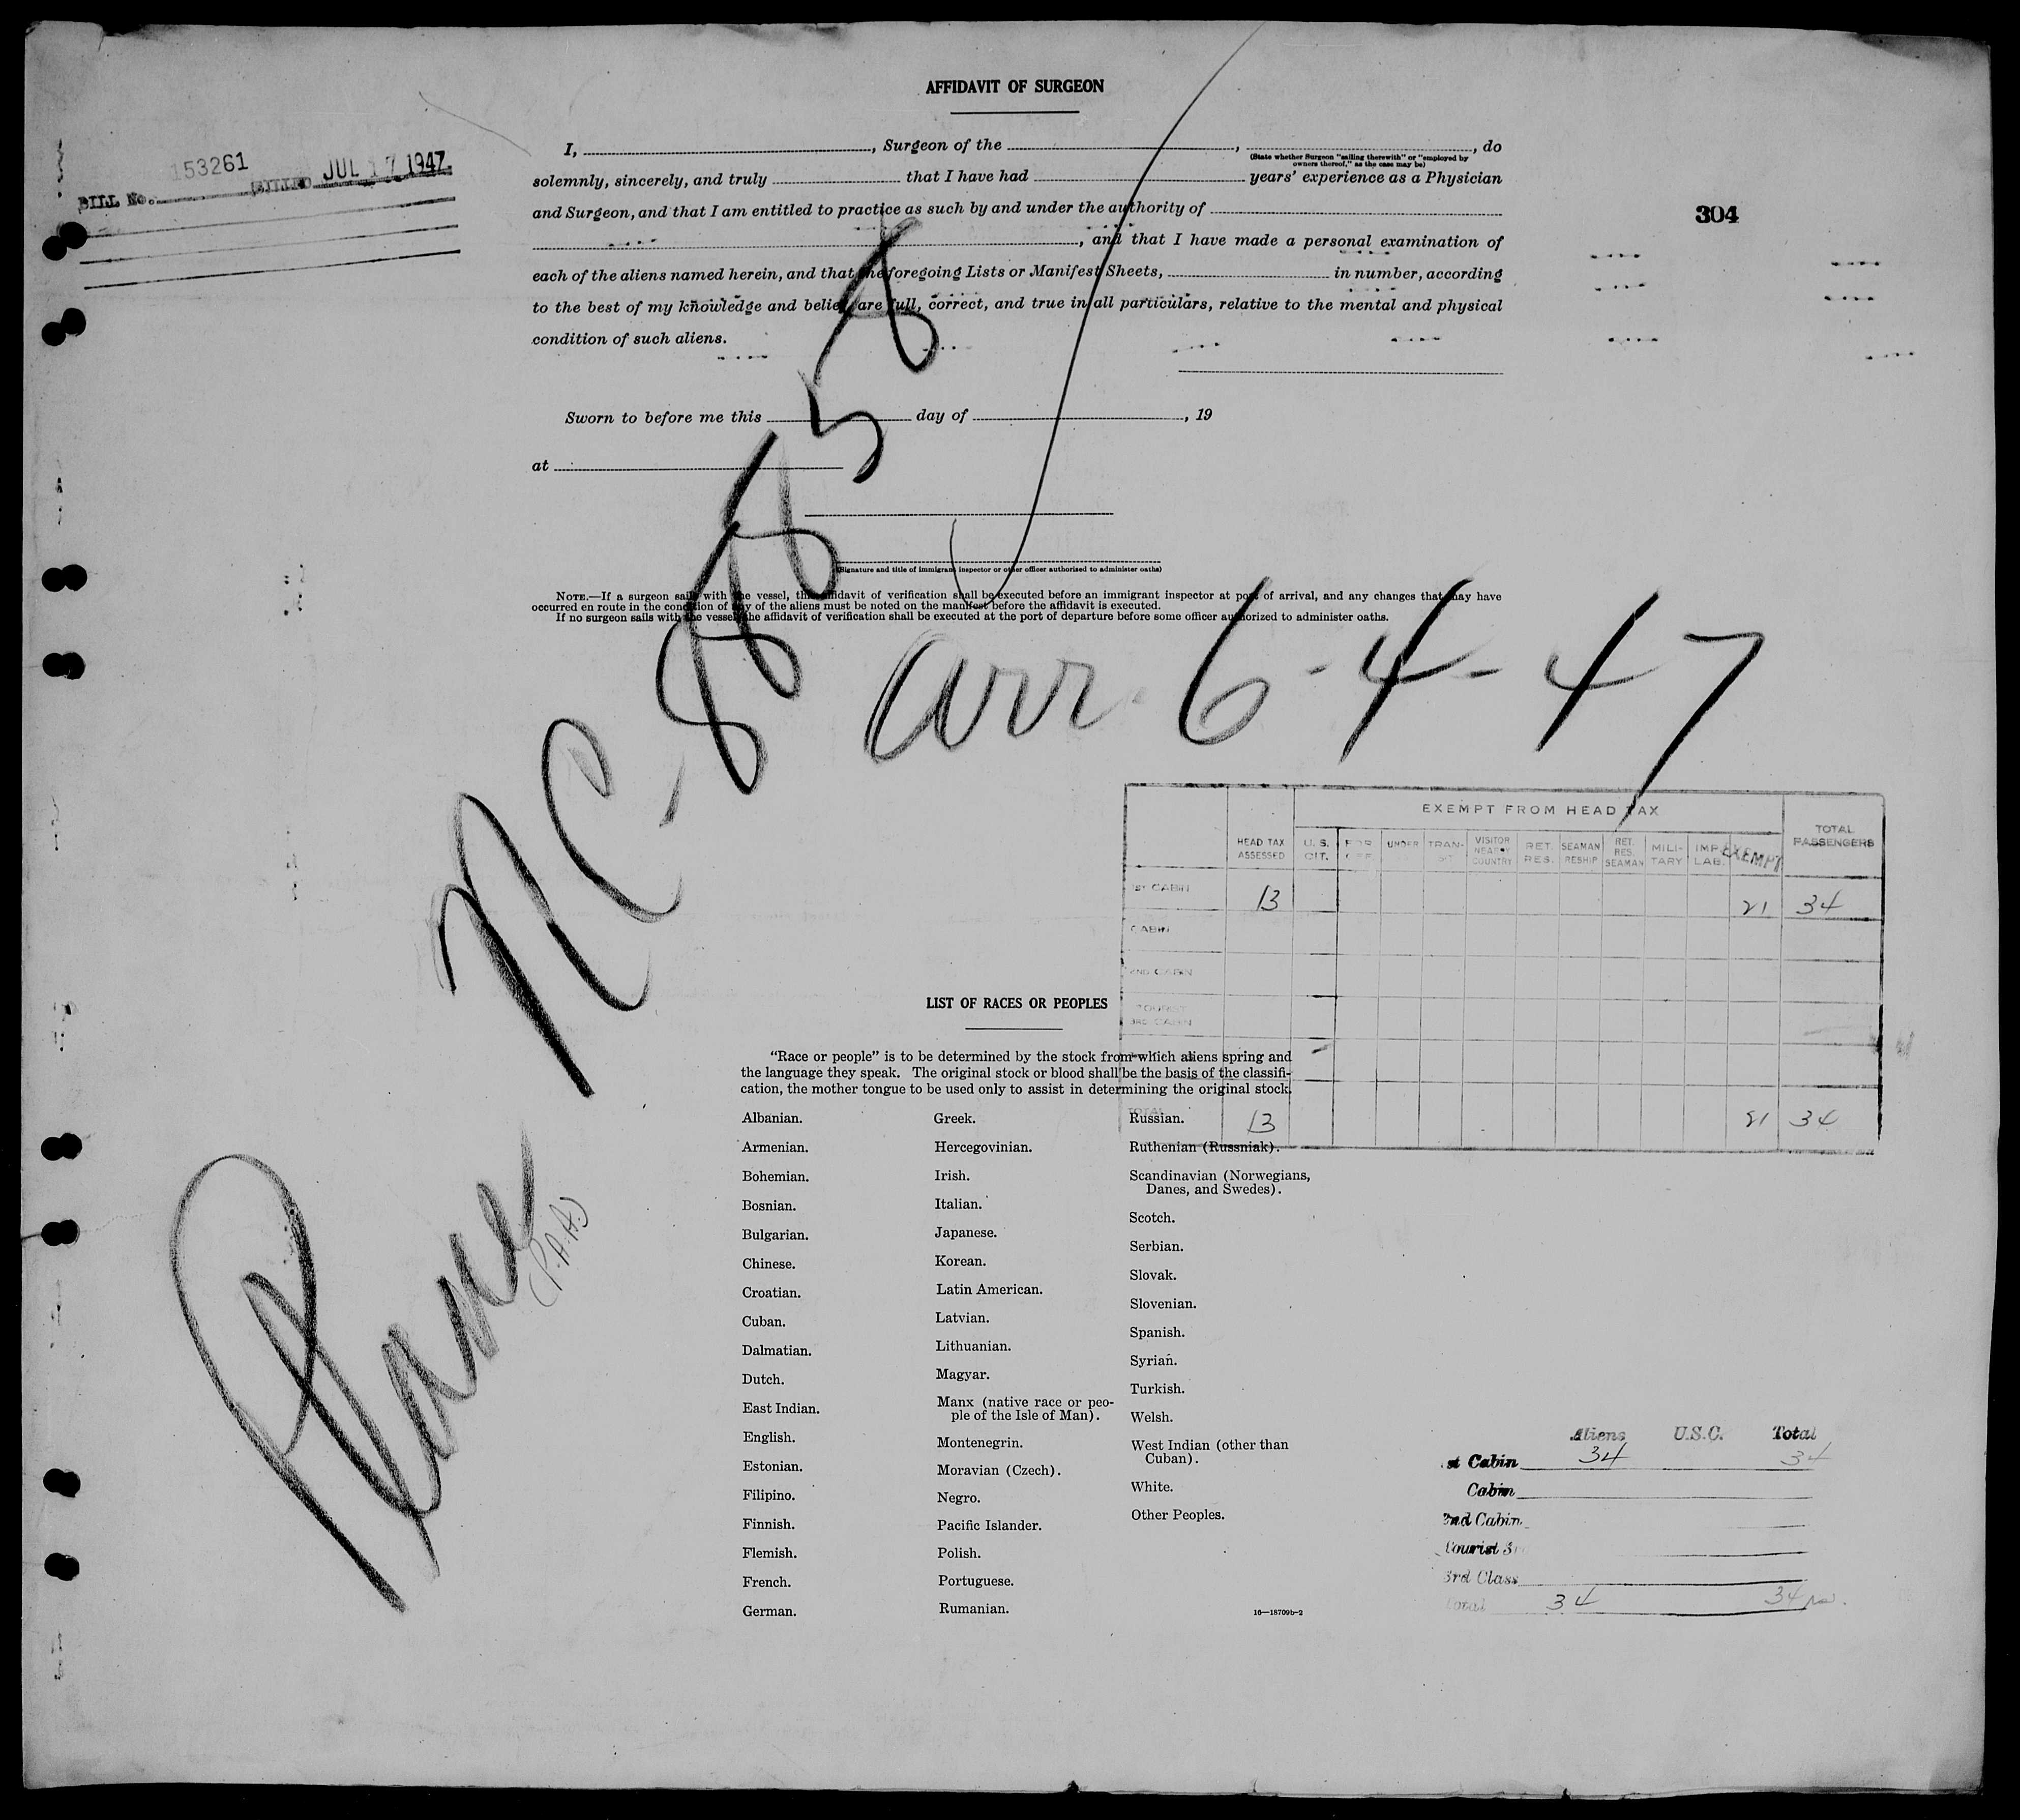 AFFIDAVIT OF SURGEON
BILL No. 153261 BILLED JUL 17 1947
304
I, , Surgeon of the , , do
(State whether Surgeon "sailing therewith" or "employed by owners thereof," as the case may be)
solemnly, sincerely, and truly that I have had years' experience as a Physician
and Surgeon, and that I am entitled to practice as such by and under the authority of
, and that I have made a personal examination of
each of the aliens named herein, and that the foregoing Lists or Manifest Sheets, in number, according
to the best of my knowledge and belief, are full, correct, and true in all particulars, relative to the mental and physical
condition of such aliens.
Sworn to before me this day of , 19
at
(Signature and title of immigrant inspector or other officer authorized to administer oaths)
NOTE.—If a surgeon sails with the vessel, this affidavit of verification shall be executed before an immigrant inspector at port of arrival, and any changes that may have
occurred en route in the condition of any of the aliens must be noted on the manifest before the affidavit is executed.
If no surgeon sails with the vessel, the affidavit of verification shall be executed at the port of departure before some officer authorized to administer oaths.
NC-88858
arr. 6-4-47
Plane
(P.A.A.)
EXEMPT FROM HEAD TAX
HEAD TAX ASSESSED U. S. CIT. FOR OFF. UNDER TRAN- SIT VISITOR NEARBY COUNTRY RET. RES. SEAMAN RESHIP RET. RES. SEAMAN MILI- TARY IMP. LAB. EXEMPT TOTAL PASSENGERS
1ST CABIN 13 21 34
CABIN
2ND CABIN
TOURIST
3RD CABIN
TOTAL 13 21 34
LIST OF RACES OR PEOPLES
"Race or people" is to be determined by the stock from which aliens spring and
the language they speak. The original stock or blood shall be the basis of the classifi-
cation, the mother tongue to be used only to assist in determining the original stock.
Albanian.
Armenian.
Bohemian.
Bosnian.
Bulgarian.
Chinese.
Croatian.
Cuban.
Dalmatian.
Dutch.
East Indian.
English.
Estonian.
Filipino.
Finnish.
Flemish.
French.
German.
Greek.
Hercegovinian.
Irish.
Italian.
Japanese.
Korean.
Latin American.
Latvian.
Lithuanian.
Magyar.
Manx (native race or peo-
ple of the Isle of Man).
Montenegrin.
Moravian (Czech).
Negro.
Pacific Islander.
Polish.
Portuguese.
Rumanian.
Russian.
Ruthenian (Russniak).
Scandinavian (Norwegians,
Danes, and Swedes).
Scotch.
Serbian.
Slovak.
Slovenian.
Spanish.
Syrian.
Turkish.
Welsh.
West Indian (other than
Cuban).
White.
Other Peoples.
16—18709b-2
Aliens U.S.C. Total
st Cabin 34 34
Cabin
2nd Cabin
Tourist 3rd
3rd Class
Total 34 34